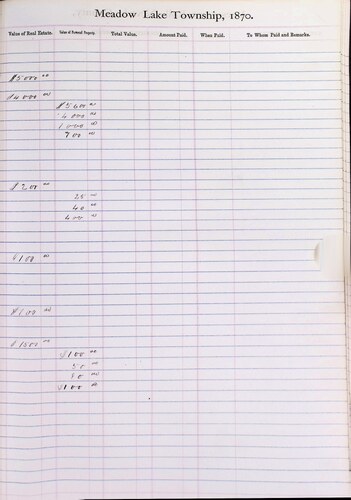 Meadow Lake Township, 1870.
Value of Real Estate. Value of Personal Property. Total Value. Amount Paid. When Paid. To Whom Paid and Remarks.
$5000 00
$4000 00
$500 00
4000 00
1000 00
700 00
$200 00
25 00
40 00
400 00
$100 00
$600 00
$1500 00
$100 00
50 00
50 00
$100 00